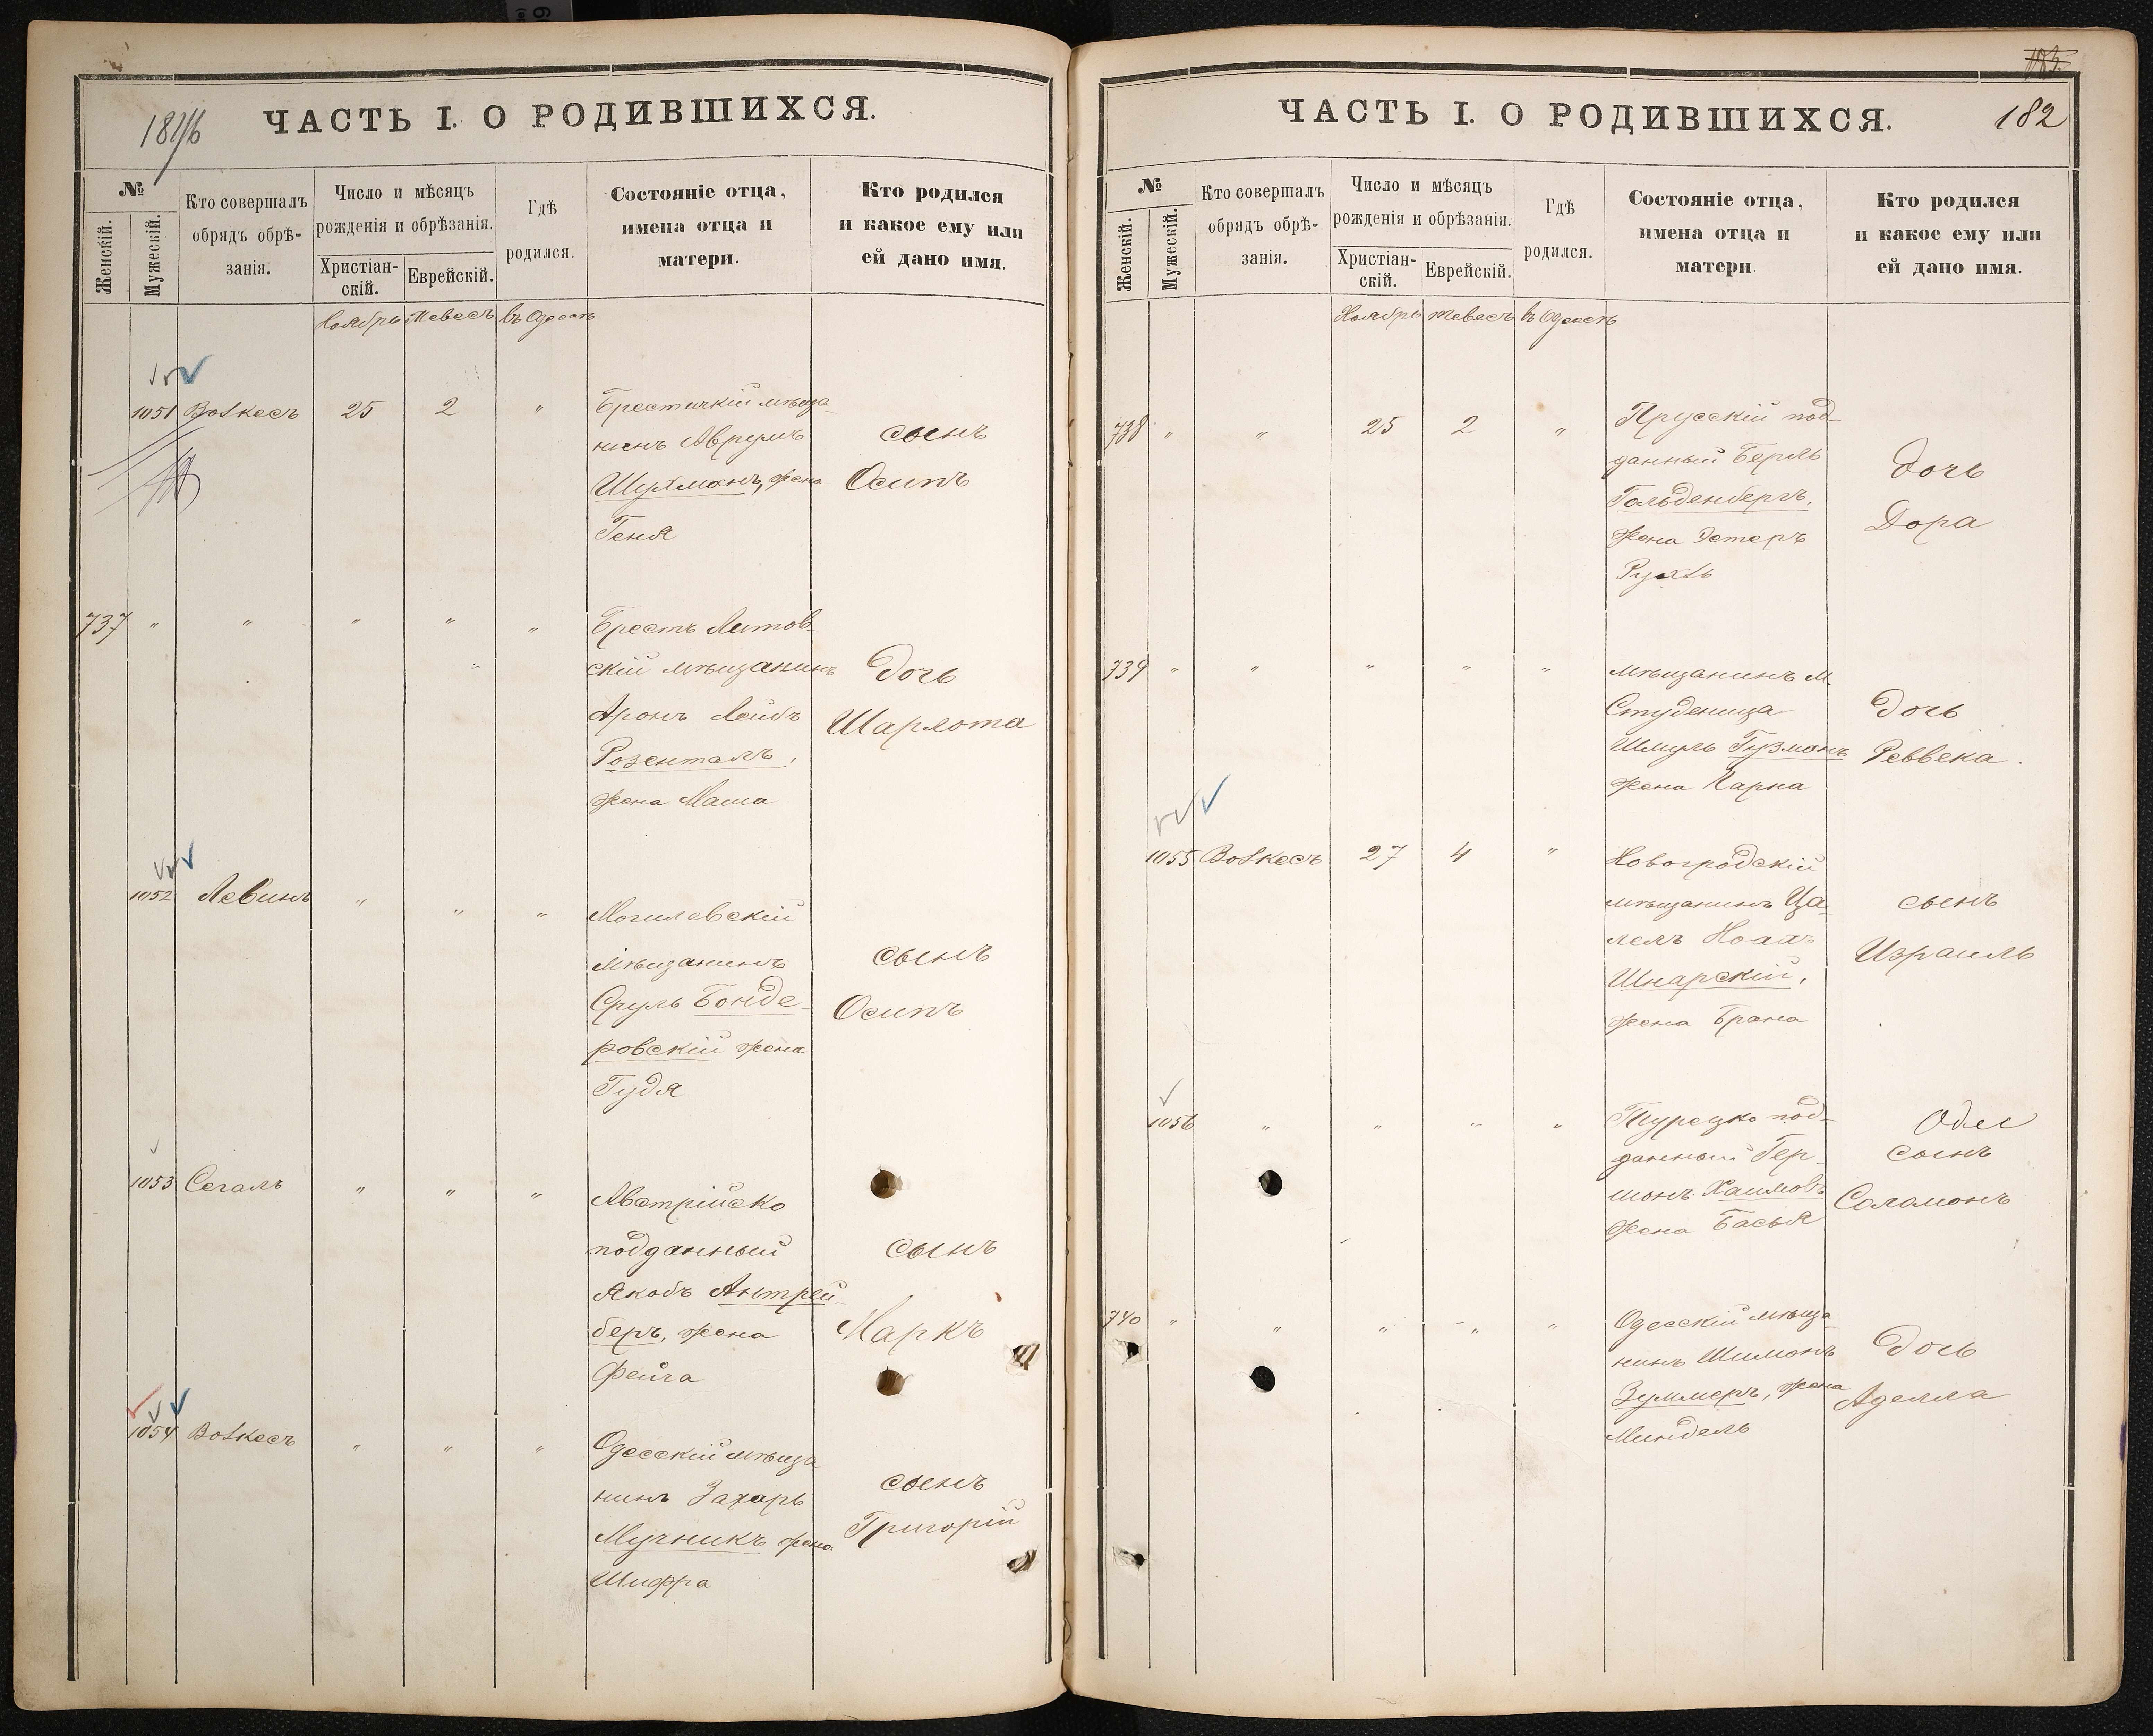 ЧАСТЬ I. О РОДИВШИХСЯ.
№
Женскій.
Мужескій.
Кто совершалъ
обрядъ обрѣ-
занія.
Число и мѣсяцъ
рожденія и обрѣзанія.
Христіан-
скій.
Еврейскій.
Гдѣ
родился.
Состояніе отца,
имена отца и
матери.
Кто родился
и какое ему или
ей дано имя.
Ноябрь Тевесъ въ Одессѣ
1051 Волкесъ 25 2 "
Брестичкій мѣща-
нинъ Аврумъ
Шухманъ, жена
Геня
сынъ
Осипъ
737 " " " " "
Брестъ Литов-
скій мѣщанинъ
Аронъ Лейбъ
Розенталъ,
жена Маша
дочь
Шарлота
1052 Левинъ " " "
Могилевскій
мѣщанинъ
Сруль Бонде-
ровскій жена
Гудя
сынъ
Осипъ
1053 Сегалъ " " "
Австрійско
подданный
Якобъ Антрей-
беръ, жена
Фейга
сынъ
Маркъ
1054 Волкесъ " " "
Одесскій мѣща
нинъ Захарь
Мучникъ жена
Шифра
сынъ
Григорій
182
ЧАСТЬ I. О РОДИВШИХСЯ.
№
Женскій.
Мужескій.
Кто совершалъ
обрядъ обрѣ-
занія.
Число и мѣсяцъ
рожденія и обрѣзанія.
Христіан-
скій.
Еврейскій.
Гдѣ
родился.
Состояніе отца,
имена отца и
матери.
Кто родился
и какое ему или
ей дано имя.
Ноябрь Тевесъ въ Одессѣ
738 " " 25 2 "
Прусскій под-
данный Берль
Гольденбергъ,
жена Эстеръ
Рухль
дочь
Дора
739 " " " " "
мѣщанинъ м.
Студеница
Шмуль Гузманъ
жена Харна
дочь
Реввека.
1055 Волкесъ 27 4 "
Новогродскій
мѣщанинъ Ца-
лелъ Ноахъ
Шнарскій,
жена Брана
сынъ
Израиль
1056 " " " "
Турецко под-
данный Гер-
шонъ Хаимовъ
жена Басья
сынъ
Саламонъ
740 " " " " "
Одесскій мѣща
нинъ Шимонъ
Зуммеръ, жена
Миндель
дочь
Аделла